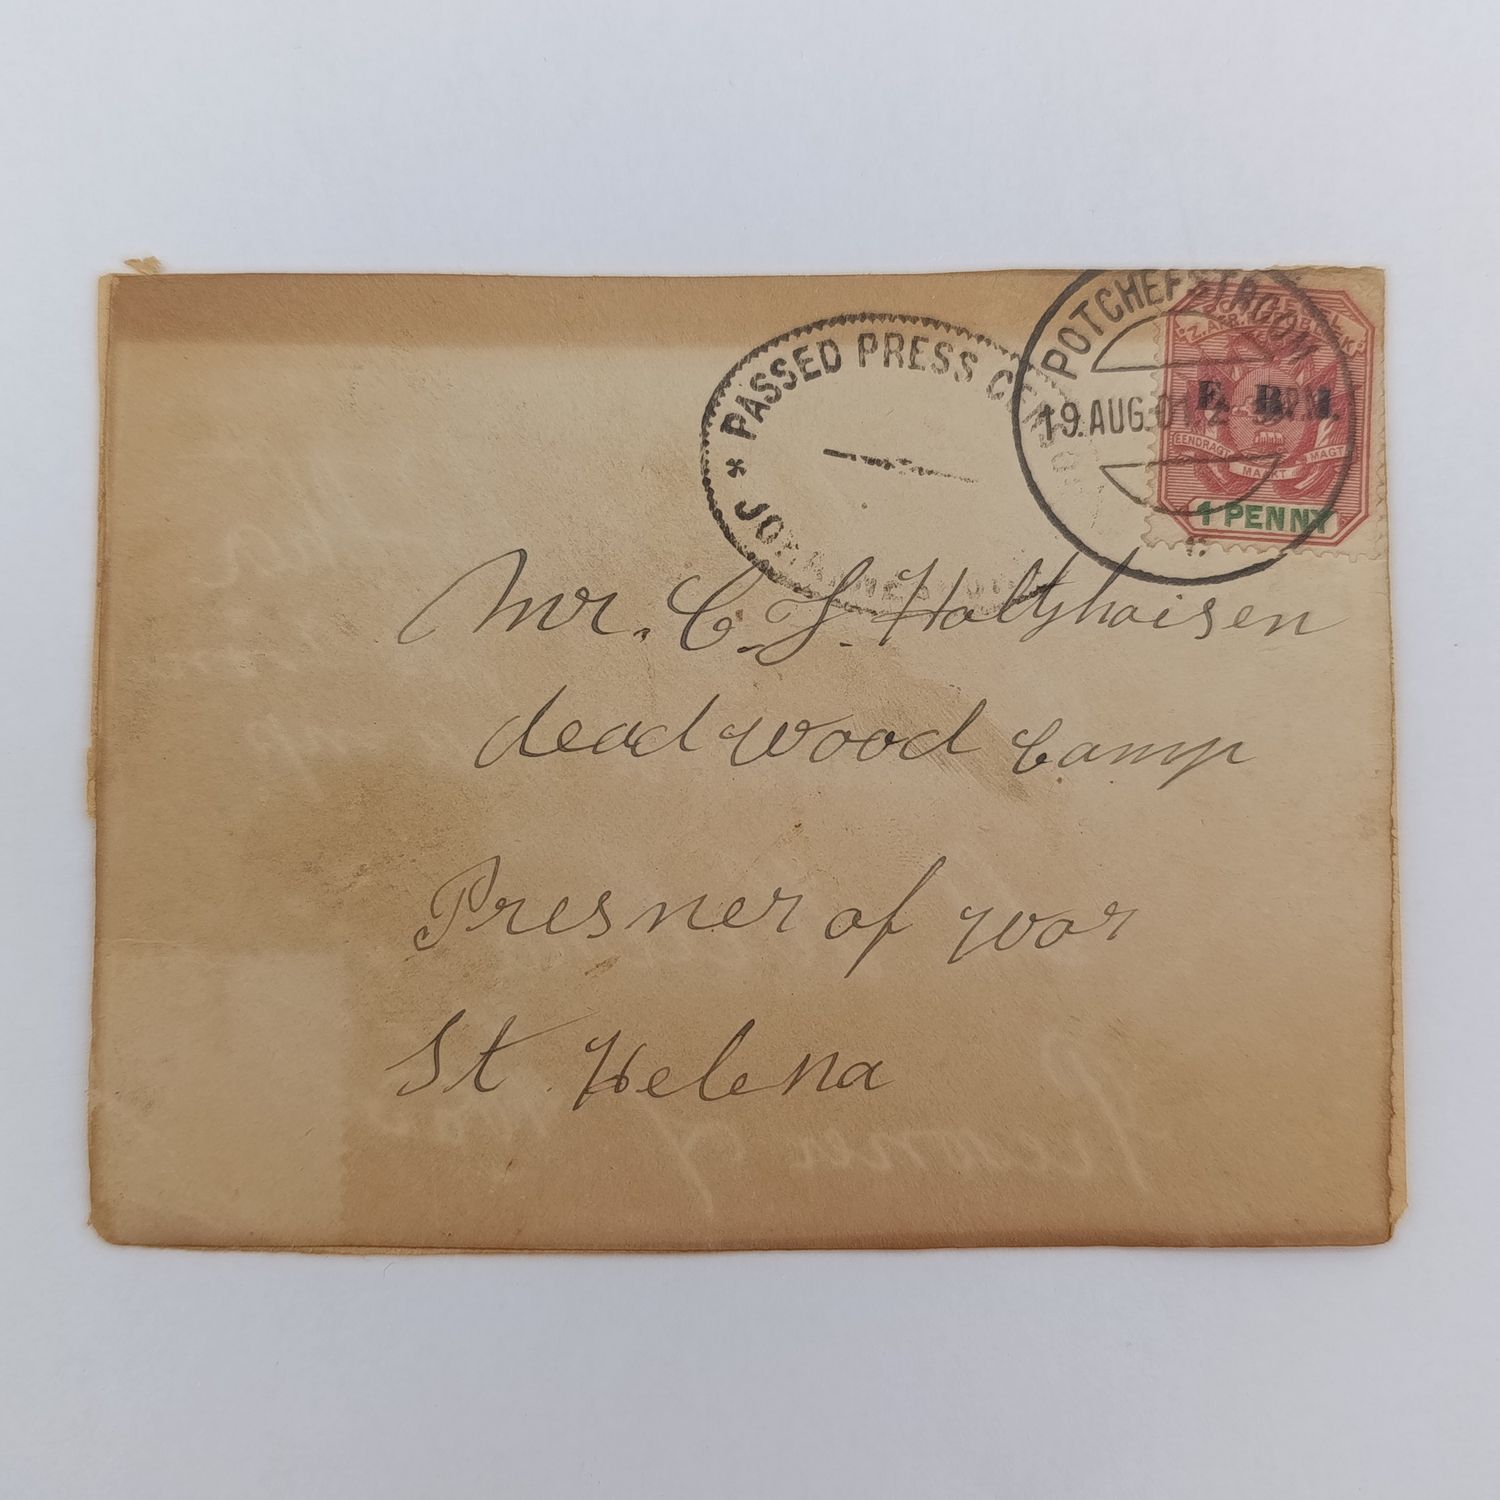 * PASSED PRESS CENSOR
JOHANNESBURG
POTCHEFSTROOM
19.AUG.01. 2 PM.
Z. AFR. REPUBLIEK
E. R. I.
EENDRAGT MAAKT MAGT
1 PENNY
Mr. C. J. Holtzhaisen
dead wood Camp
Presner of war
St Helena